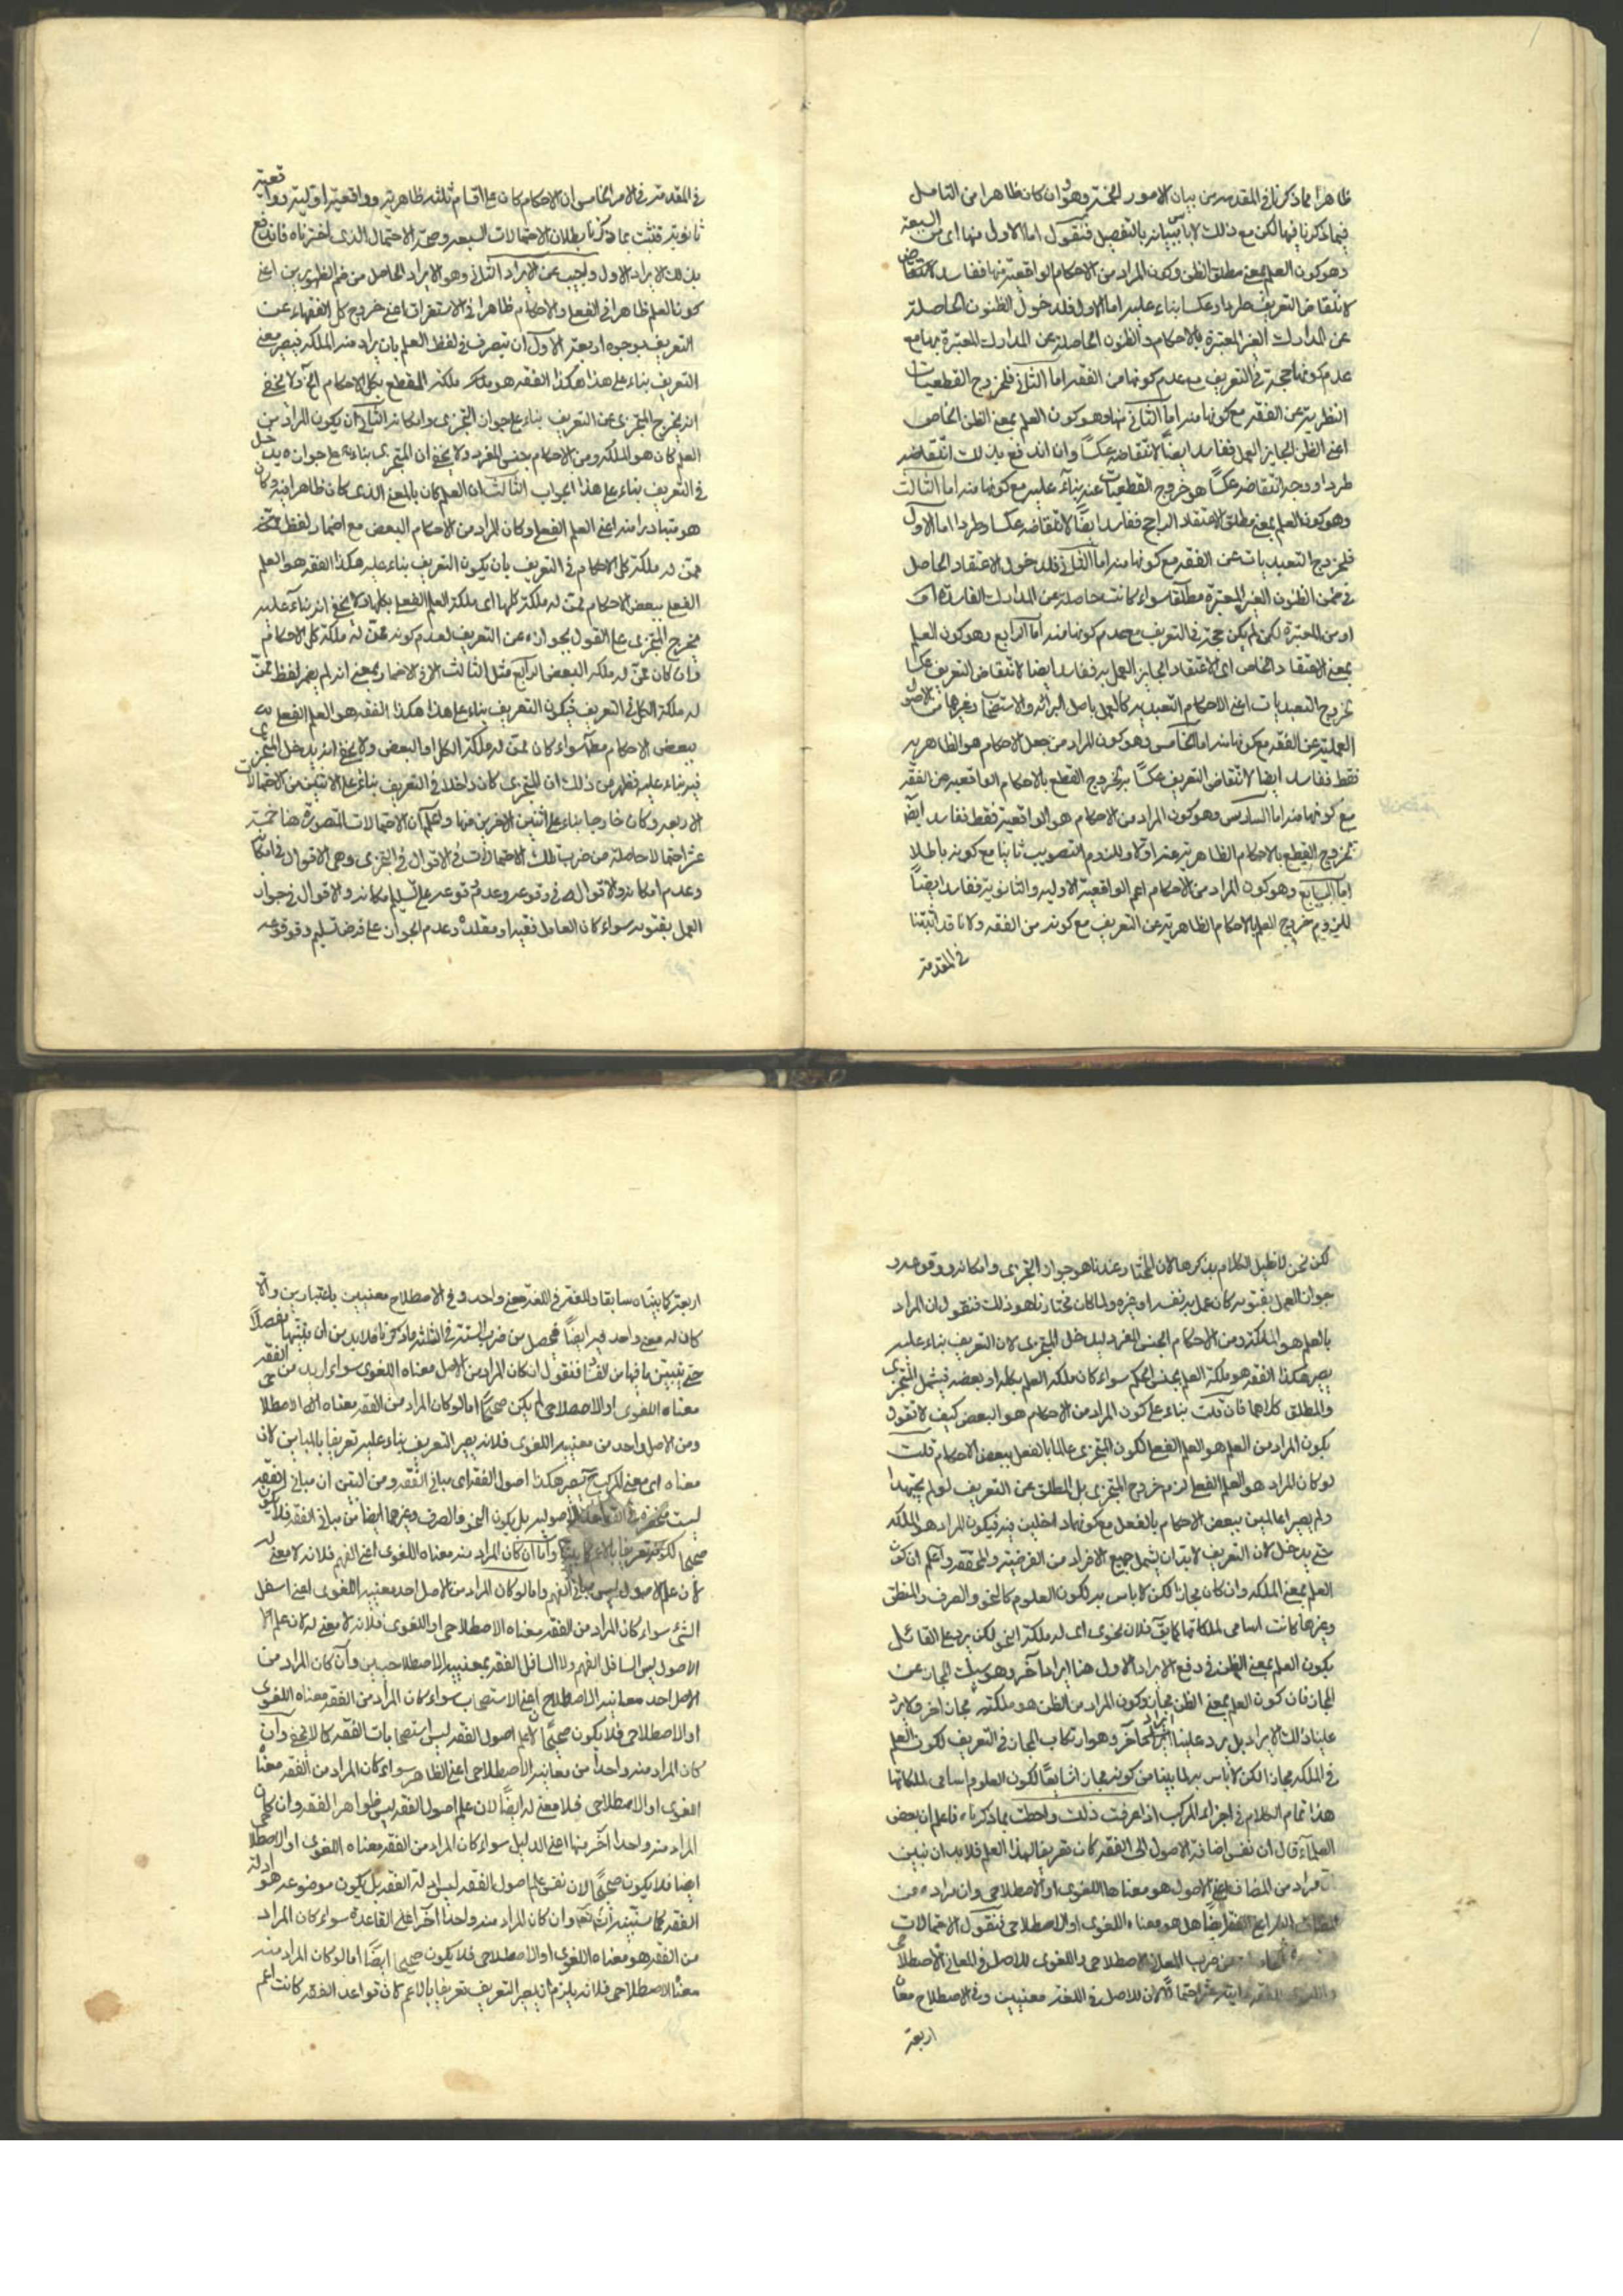 ظاهرا مما ذكرنا فى المقدمة من بيان الامور الخمسة وهو وان كان ظاهرا من التامل
فيما ذكرنا فيها لكن مع ذلك لا باس ببيانه بالتفصيل فنقول اما الاول منها اى من السبعة
وهو كون العلم بمعنى مطلق الظن وكون المراد من الاحكام الواقعية منها ففاسد
لانتقاض التعريف طردا وعكسا بناء عليه اما الاول فلدخول الظنون الحاصلة
عن المدارك الغير المعتبرة بالاحكام والظنون الحاصلة عن المدارك المعتبرة مع
عدم كونها حجة فى التعريف مع عدم كونها من الفقه اما الثانى فلخروج القطعيات
النظرية عن الفقه مع كونها منه اما الثانى منها وهو كون العلم بمعنى الظن الخاص
اعنى الظن الجايز العمل ففاسد ايضا لانتقاضه عكسا وان اندفع بذلك انتقاضه
طردا ووجه انتقاضه عكسا هو خروج القطعيات عنه بناء عليه مع كونها منه اما الثالث
وهو كون العلم بمعنى مطلق الاعتقاد الراجح ففاسد ايضا لانتقاضه عكسا وطردا اما الاول
فلخروج التعبديات عن الفقه مع كونها منه اما الثانى فلدخول الاعتقاد الحاصل
فى ضمن الظنون الغير المعتبرة مطلقا سواء كانت حاصلة عن المدارك الفاسدة
او من المعتبرة لكن لم يكن حجة فى التعريف مع عدم كونها منه اما الرابع وهو كون العلم
بمعنى الاعتقاد الخاص اى الاعتقاد الجايز العمل به ففاسد ايضا لانتقاض التعريف عكسا
بخروج التعبديات اعنى الاحكام التعبدية كالعمل باصل البرائة والاستصحاب وغيرهما من الاصول
العملية عن الفقه مع كونها منه اما الخامس وهو كون المراد من جعل الاحكام هو الظاهرية
فقط ففاسد ايضا لانتقاض التعريف عكسا بخروج القطع بالاحكام الواقعية عن الفقه
مع كونها منه اما السادس وهو كون المراد من الاحكام هو الواقعية فقط ففاسد ايضا
لخروج القطع بالاحكام الظاهرية عنه اولا وللزوم التصويب ثانيا مع كونه باطلا
اما السابع وهو كون المراد من الاحكام اعم الواقعية الاولية والثانوية ففاسد ايضا
للزوم خروج العلم بالاحكام الظاهرية عن التعريف مع كونه من الفقه ولانا قد اثبتنا
فى المقدمة
فى المقدمة فى الامر الخامس ان الاحكام كان على اقسام ثلثة ظاهرية وواقعية اولية وواقعية
ثانوية فثبت بما ذكرنا بطلان الاحتمالات السبعة وصحة الاحتمال الذى اخترناه فاندفع
بذلك الايراد الاول واجيب عن الايراد الثانى وهو الايراد الحاصل من ضم الظهورين اعنى
كون العلم ظاهرا فى الفعل والاحكام ظاهرا فى الاستغراق اعنى خروج كل الفقهاء عن
التعريف بوجوه اربعة الاول ان يتصرف فى لفظ العلم بان يراد منه الملكة فيصير معنى
التعريف بناء على هذا هكذا الفقه هو ملكة القطع بكل الاحكام الخ ولا يخفى
انه يخرج المتجزى عن التعريف بناء على جواز التجزى وامكانه الثانى ان يكون المراد من
العلم كان هو الملكة ومن الاحكام جنس المفرد ولا يخفى ان المتجزى بناء على جوازه يدخل
فى التعريف بناء على هذا الجواب الثالث ان العلم كان بالمعنى الذى كان ظاهرا فيه وكان
هو متبادرا منه اعنى العلم الفعلى وكان المراد من الاحكام البعض مع اضمار لفظ
ممن له ملكة كل الاحكام فى التعريف بان يكون التعريف بناء عليه هكذا الفقه هو العلم
الفعلى ببعض الاحكام ممن له ملكة كلها اى ملكة العلم الفعلى بكلها ولا يخفى انه بناء عليه
يخرج المتجزى على القول بجوازه عن التعريف لعدم كونه ممن له ملكة كل الاحكام
وان كان ممن له ملكة البعض الرابع مثل الثالث الا فى الاضمار بمعنى انه لم يضمر لفظ ممن
له ملكة الكل فى التعريف فيكون التعريف بناء على هذا هكذا الفقه هو العلم الفعلى
ببعض الاحكام مطلقا سواء كان ممن له ملكة الكل او البعض ولا يخفى انه يدخل المتجزى
فيه بناء عليه فظهر من ذلك ان المتجزى كان داخلا فى التعريف بناء على الاثنين من الاحتمالات
الاربعة وكان خارجا بناء على اثنين الاخرين منها واعلم ان الاحتمالات المتصورة هنا خمسة
عشر احتمالا حاصلة من ضرب تلك الاحتمالات فى الاقوال فى التجزى وهى الاقوال فى امكانه
وعدم امكانه والاقوال فى وقوعه وعدم وقوعه على تسليم امكانه والاقوال فى جواز
العمل بفتويه سواء كان العامل نفسه او مقلده وعدم الجواز على فرض تسليم وقوعه
لكن نحن لا نطيل الكلام بذكرها لان المختار عندنا هو جواز التجزى وامكانه ووقوعه و
جواز العمل بفتويه كان عمل به نفسه او غيره ولما كان مختارنا هو ذلك فنقول ان المراد
بالعلم هو الملكة ومن الاحكام الجنس المفرد ليدخل المتجزى لان التعريف بناء عليه
يصير هكذا الفقه هو ملكة العلم بجنس الحكم سواء كان ملكة العلم بكله او بعضه فيشمل المتجزى
والمطلق كلاهما فان قلت بناء على كون المراد من الاحكام هو البعض كيف لا تقول
بكون المراد من العلم هو العلم الفعلى لكون المتجزى عالما بالفعل ببعض الاحكام قلت
لو كان المراد هو العلم الفعلى لزم خروج المتجزى بل المطلق عن التعريف لو لم يجتهدا
ولم يصيرا عالمين ببعض الاحكام بالفعل مع كونهما داخلين فيه فيكون المراد هو الملكة
حتى يدخل لان التعريف لابد ان يشمل جميع الافراد من الفرضية والمحققة واعلم ان كون
العلم بمعنى الملكة وان كان مجازا لكن لا باس به لكون العلوم كالنحو والصرف والمنطق
وغيرها كانت اسامى لملكاتها كما يق فلان نحوى اى له ملكة النحو لكن يرد على القائل
بكون العلم بمعنى الظن فى دفع الايراد الاول هنا ايراد آخر وهو سبك المجاز عن
المجاز فان كون العلم بمعنى الظن مجاز وكون المراد من الظن هو ملكته مجاز اخر ولا يرد
علينا ذلك الايراد بل يرد علينا ايراد آخر وهو ارتكاب المجاز فى التعريف لكون العلم
فى الملكة مجازا لكن لا باس به لما بينا من كونه مجازا شايعا لكون العلوم اسامى لملكاتها
هذا تمام الكلام فى اجزاء المركب اذا عرفت ذلك واحطت بما ذكرناه فاعلم ان بعض
العلماء قال ان نفس اضافة الاصول الى الفقه كان تعريفا لهذا العلم فلابد ان نبين
مراد من المضاف اعنى الاصول هو معناها اللغوى او الاصطلاحى وان مراده من
المضاف اليه اعنى الفقه ايضا هل هو معناه اللغوى او الاصطلاحى فنقول الاحتمالات
من ضرب المعانى الاصطلاحى واللغوى للاصل فى المعانى الاصطلاحى
للفقه اثنى عشر احتمالا لان للاصل فى اللغة معنيين وفى الاصطلاح معان
اربعة
اربعة كما بيناه سابقا وللفقه فى اللغة معنى واحد وفى الاصطلاح معنيين باعتبارين والا
كان له معنى واحد فيه ايضا فحصل من ضرب الستة فى الثلثة ما ذكرنا فلابد من ان نبينها مفصلا
حتى يتبين ما فيها من الفساد فنقول ان كان المراد من الاصل معناه اللغوى سواء اريد من الفقه
معناه اللغوى او الاصطلاحى لم يكن صحيحا اما لو كان المراد من الفقه معناه الاصطلاحى
ومن الاصل واحد من معنييه اللغوى فلانه يصير التعريف بناء عليه تعريفا بالمباين لان
معناه اى معنى المركب ح يصير هكذا اصول الفقه اى مبانى الفقه ومن البين ان مبانى الفقه
ليست منحصرة فى القواعد الاصولية بل يكون النحو والصرف وغيرهما ايضا من مبانى الفقه فلا يكون
صحيحا لكونه تعريفا بالاعم واما ان كان المراد منه معناه اللغوى اعنى الفهم فلانه لا معنى له
لان علم الاصول ليس مبانى الفهم واما لو كان المراد من الاصل احد معنييه اللغوى اعنى اسفل
الشئ سواء كان المراد من الفقه معناه الاصطلاحى او اللغوى فلانه لا معنى له لان علم
الاصول ليس السافل الفهم ولا السافل الفقه بمعنييه الاصطلاحيين وان كان المراد من
الاصل احد معانيه الاصطلاحى اعنى الاستصحاب سواء كان المراد من الفقه معناه اللغوى
او الاصطلاحى فلا يكون صحيحا لان علم اصول الفقه ليس استصحابات الفقه كما لا يخفى وان
كان المراد منه واحدا من معانيه الاصطلاحى اعنى الظاهر سواء كان المراد من الفقه معناه
اللغوى او الاصطلاحى فلا معنى له ايضا لان علم اصول الفقه ليس ظواهر الفقه وان كان
المراد منه واحدا آخر منها اعنى الدليل سواء كان المراد من الفقه معناه اللغوى او الاصطلاحى
ايضا فلا يكون صحيحا لان نفس علم اصول الفقه ليس ادلة الفقه بل يكون موضوعه هو ادلة
الفقه كما سنبينه انشاء الله تعالى وان كان المراد منه واحدا آخر اعنى القاعدة سواء كان المراد
من الفقه هو معناه اللغوى او الاصطلاحى فلا يكون صحيحا ايضا اما لو كان المراد منه
معناه الاصطلاحى فلانه يلزم ان يصير التعريف تعريفا بالاعم لان قواعد الفقه كانت اعم